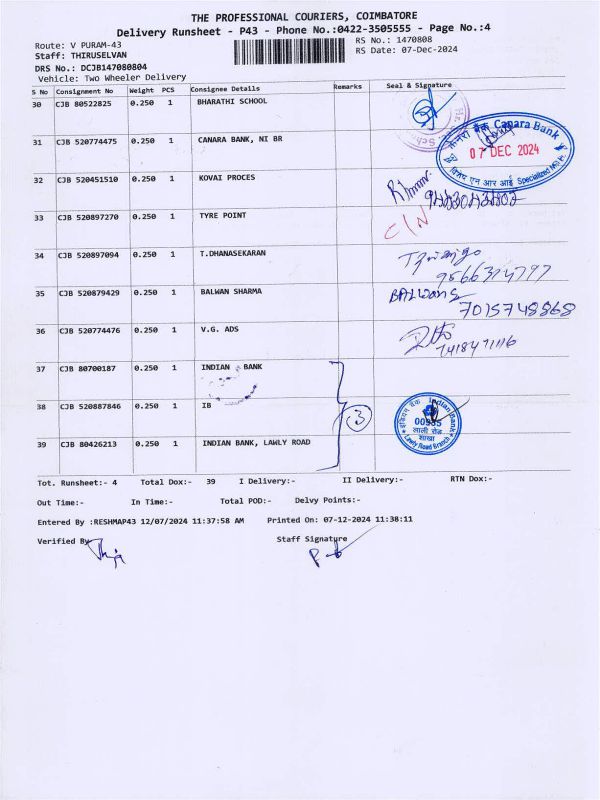 THE PROFESSIONAL COURIERS, COIMBATORE
Delivery Runsheet - P43 - Phone No.:0422-3505555 - Page No.:4
Route: V PURAM-43
RS No.: 1470808
Staff: THIRUSELVAN
RS Date: 07-Dec-2024
DRS No.: DCJB147080804
Vehicle: Two Wheeler Delivery
S No Consignment No Weight PCS Consignee Details Remarks Seal & Signature
30 CJB 80522825 0.250 1 BHARATHI SCHOOL
31 CJB 520774475 0.250 1 CANARA BANK, NI BR
Canara Bank
07 DEC 2024
32 CJB 520451510 0.250 1 KOVAI PROCES
33 CJB 520897270 0.250 1 TYRE POINT
C/N
34 CJB 520897094 0.250 1 T.DHANASEKARAN
35 CJB 520879429 0.250 1 BALWAN SHARMA
BALWAN S
7015748868
36 CJB 520774476 0.250 1 V.G. ADS
37 CJB 80700187 0.250 1 INDIAN BANK
38 CJB 520887846 0.250 1 IB
3
इंडियन बैंक Indian Bank
00935
लाली रोड
शाखा
Lawly Road Branch
39 CJB 80426213 0.250 1 INDIAN BANK, LAWLY ROAD
Tot. Runsheet:- 4 Total Dox:- 39 I Delivery:- II Delivery:- RTN Dox:-
Out Time:- In Time:- Total POD:- Delvy Points:-
Entered By :RESHMAP43 12/07/2024 11:37:58 AM Printed On: 07-12-2024 11:38:11
Verified By
Staff Signature